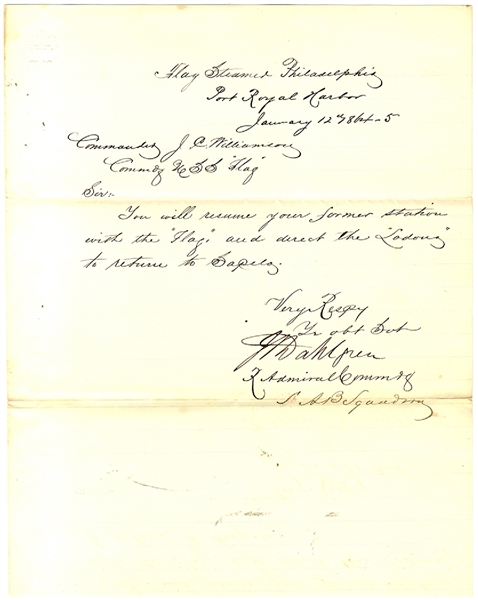 Flag Steamer Philadelphia
Port Royal Harbor
January 12th 1864-5
Commander J. C. Williamson
Commdg U.S.S. "Flag"
Sir:-
You will resume your former station
with the "Flag," and direct the "Ladona"
to return to Sapelo.
Very Respy
Yr obt Svt
J A Dahlgren
R Admiral Commdg
S. A B Squadron